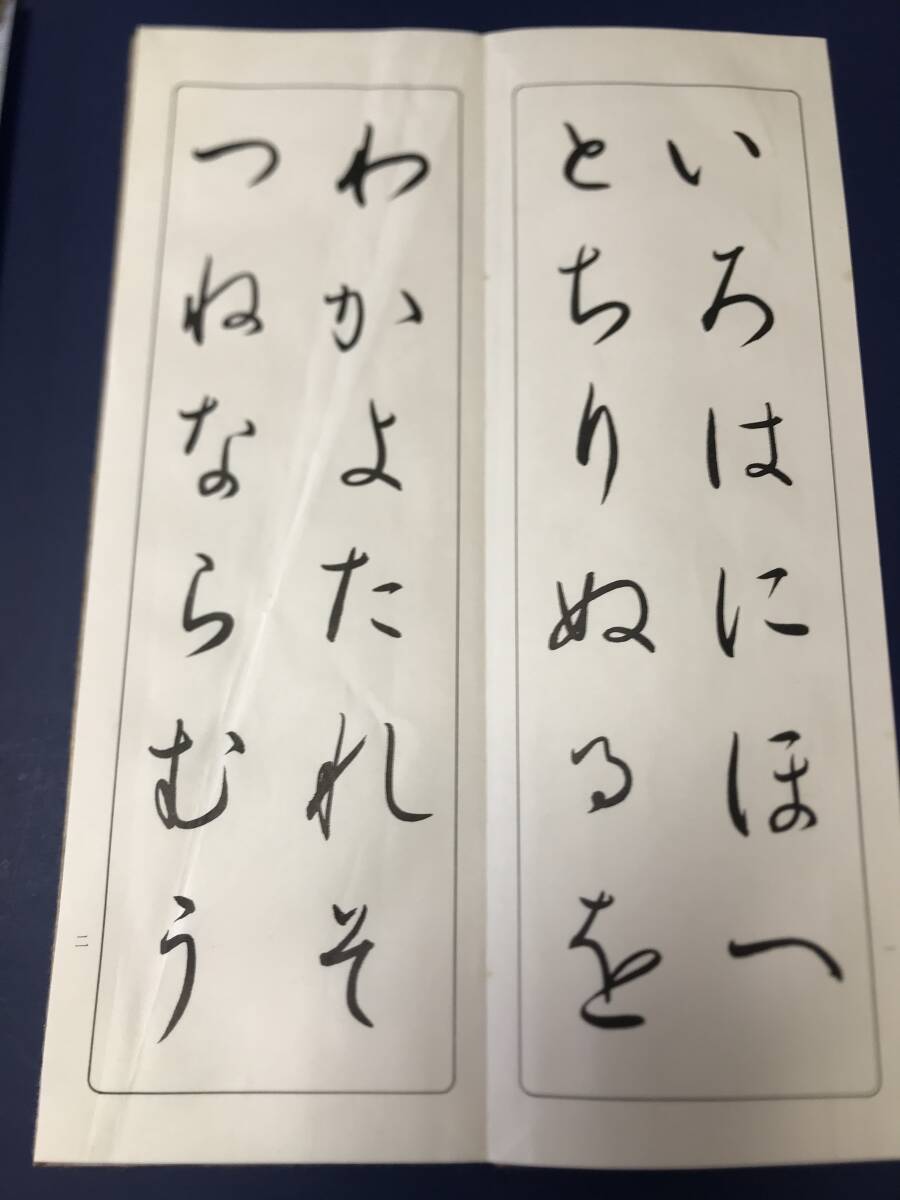 いろはにほへ
とちりぬるを
一
わかよたれそ
つねならむう
二